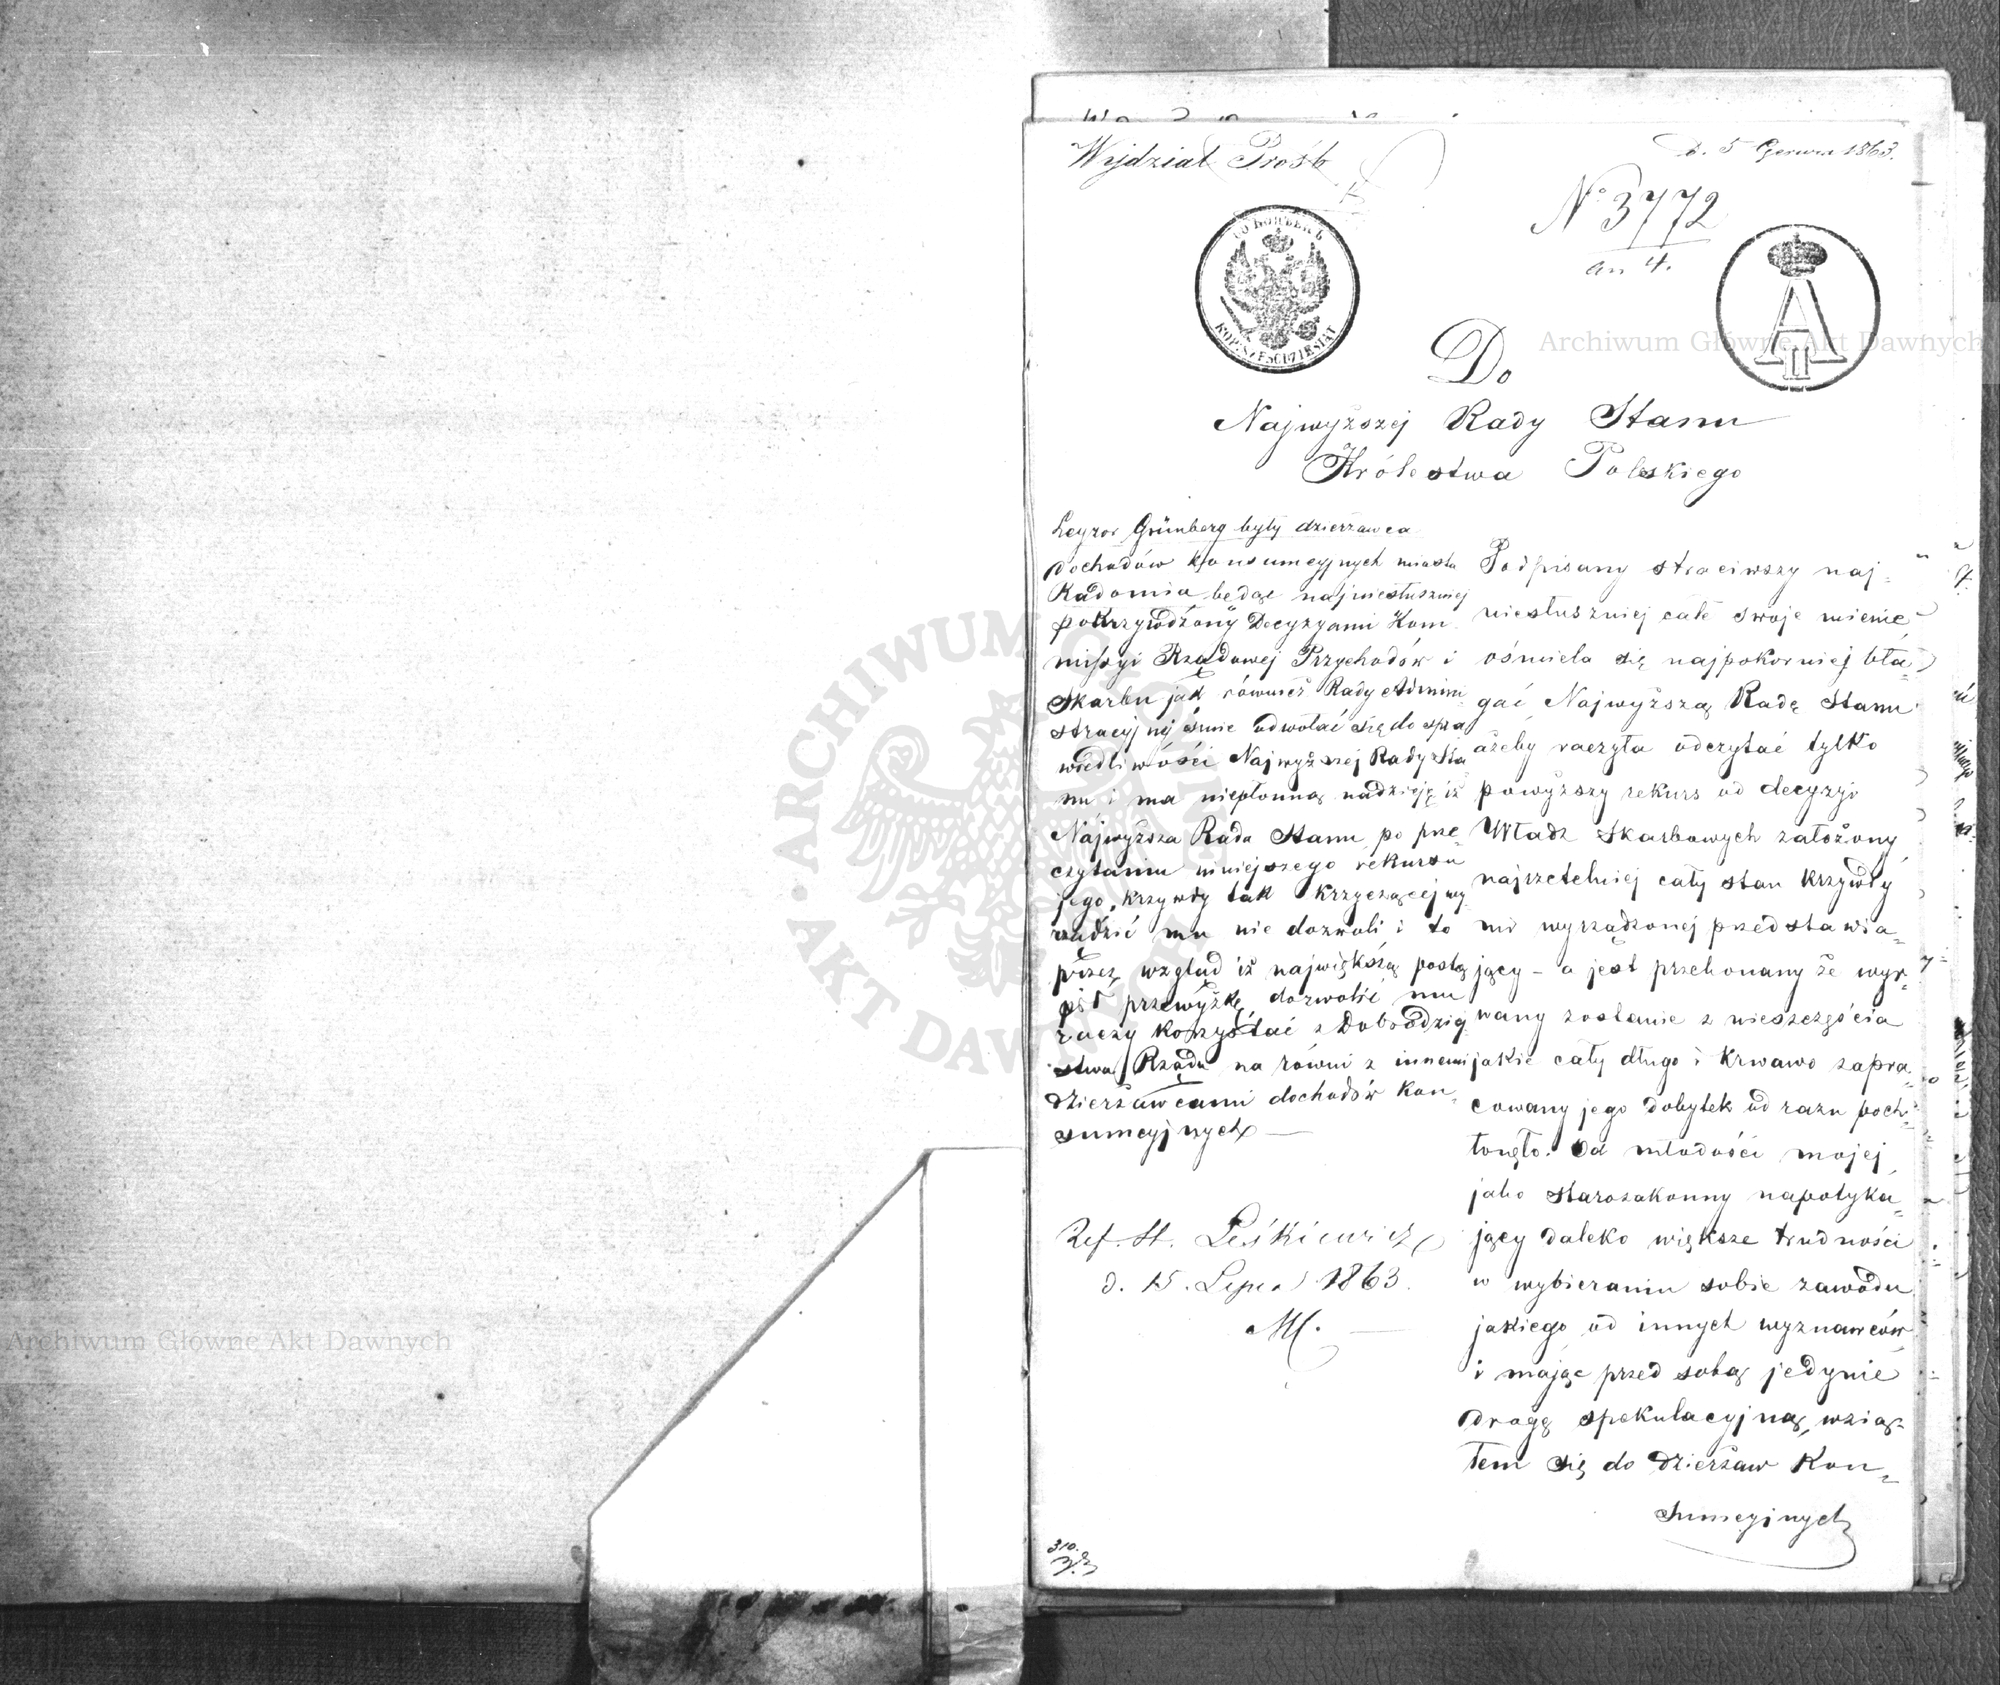 Wydział Prośb
d. 5 Czerwca 1863.
N° 3772
an 4.
60 КОПѢЕКЪ
KOP: SZEŚĆDZIESIĄT
A II
Do
Najwyższej Rady Stanu
Królestwa Polskiego
Leyzor Grünberg były dzierzawca
dochodów konsumcyjnych miasta
Radomia będąc najniesłuszniej
pokrzywdzony Decyzyami Kom
missyi Rządowej Przychodów i
Skarbu jak również Rady Admini
stracyjnej śmie odwołać się do spra
wiedliwości Najwyższej Rady Sta
nu i ma niepłonną nadzieję iż
Najwyższa Rada Stanu po prze
czytaniu niniejszego rekursu
jego, krzywdy tak krzyczącej wy
rządzić mu nie dozwoli i to
przez wzgląd iż największą postą
pił przewyżkę dozwolić mu
raczy korzystać z Dobrodziej
stwa Rządu na równi z innemi
dzierżawcami dochodów kon
sumcyjnych —
Ref. St. Leśkiewicz
d. 15. Lipca 1863.
M.
310.
Podpisany straciwszy naj=
niesłuszniej całe swoje mienie
ośmiela się najpokorniej bła=
gać Najwyższą Radę Stanu
ażeby raczyła odczytać tylko
powyższy rekurs od decyzyi
Władz Skarbowych założony
najrzetelniej cały stan krzywdy
mi wyrządzonej przedstawia=
jący – a jest przekonany że wyr=
wany zostanie z nieszczęścia
jakie cały długo i krwawo zapra=
cowany jego dobytek od razu poch=
łonęło. Od młodości mojej
jako starozakonny napotyka=
jący daleko większe trudności
w wybieraniu sobie zawodu
jakiego od innych wyznawców
i mając przed sobą jedynie
drogę spekulacyjną, wzią=
łem się do dzierżaw kon=
sumcyjnych
ARCHIWUM GŁÓWNE AKT DAWNYCH
Archiwum Główne Akt Dawnych
Archiwum Główne Akt Dawnych